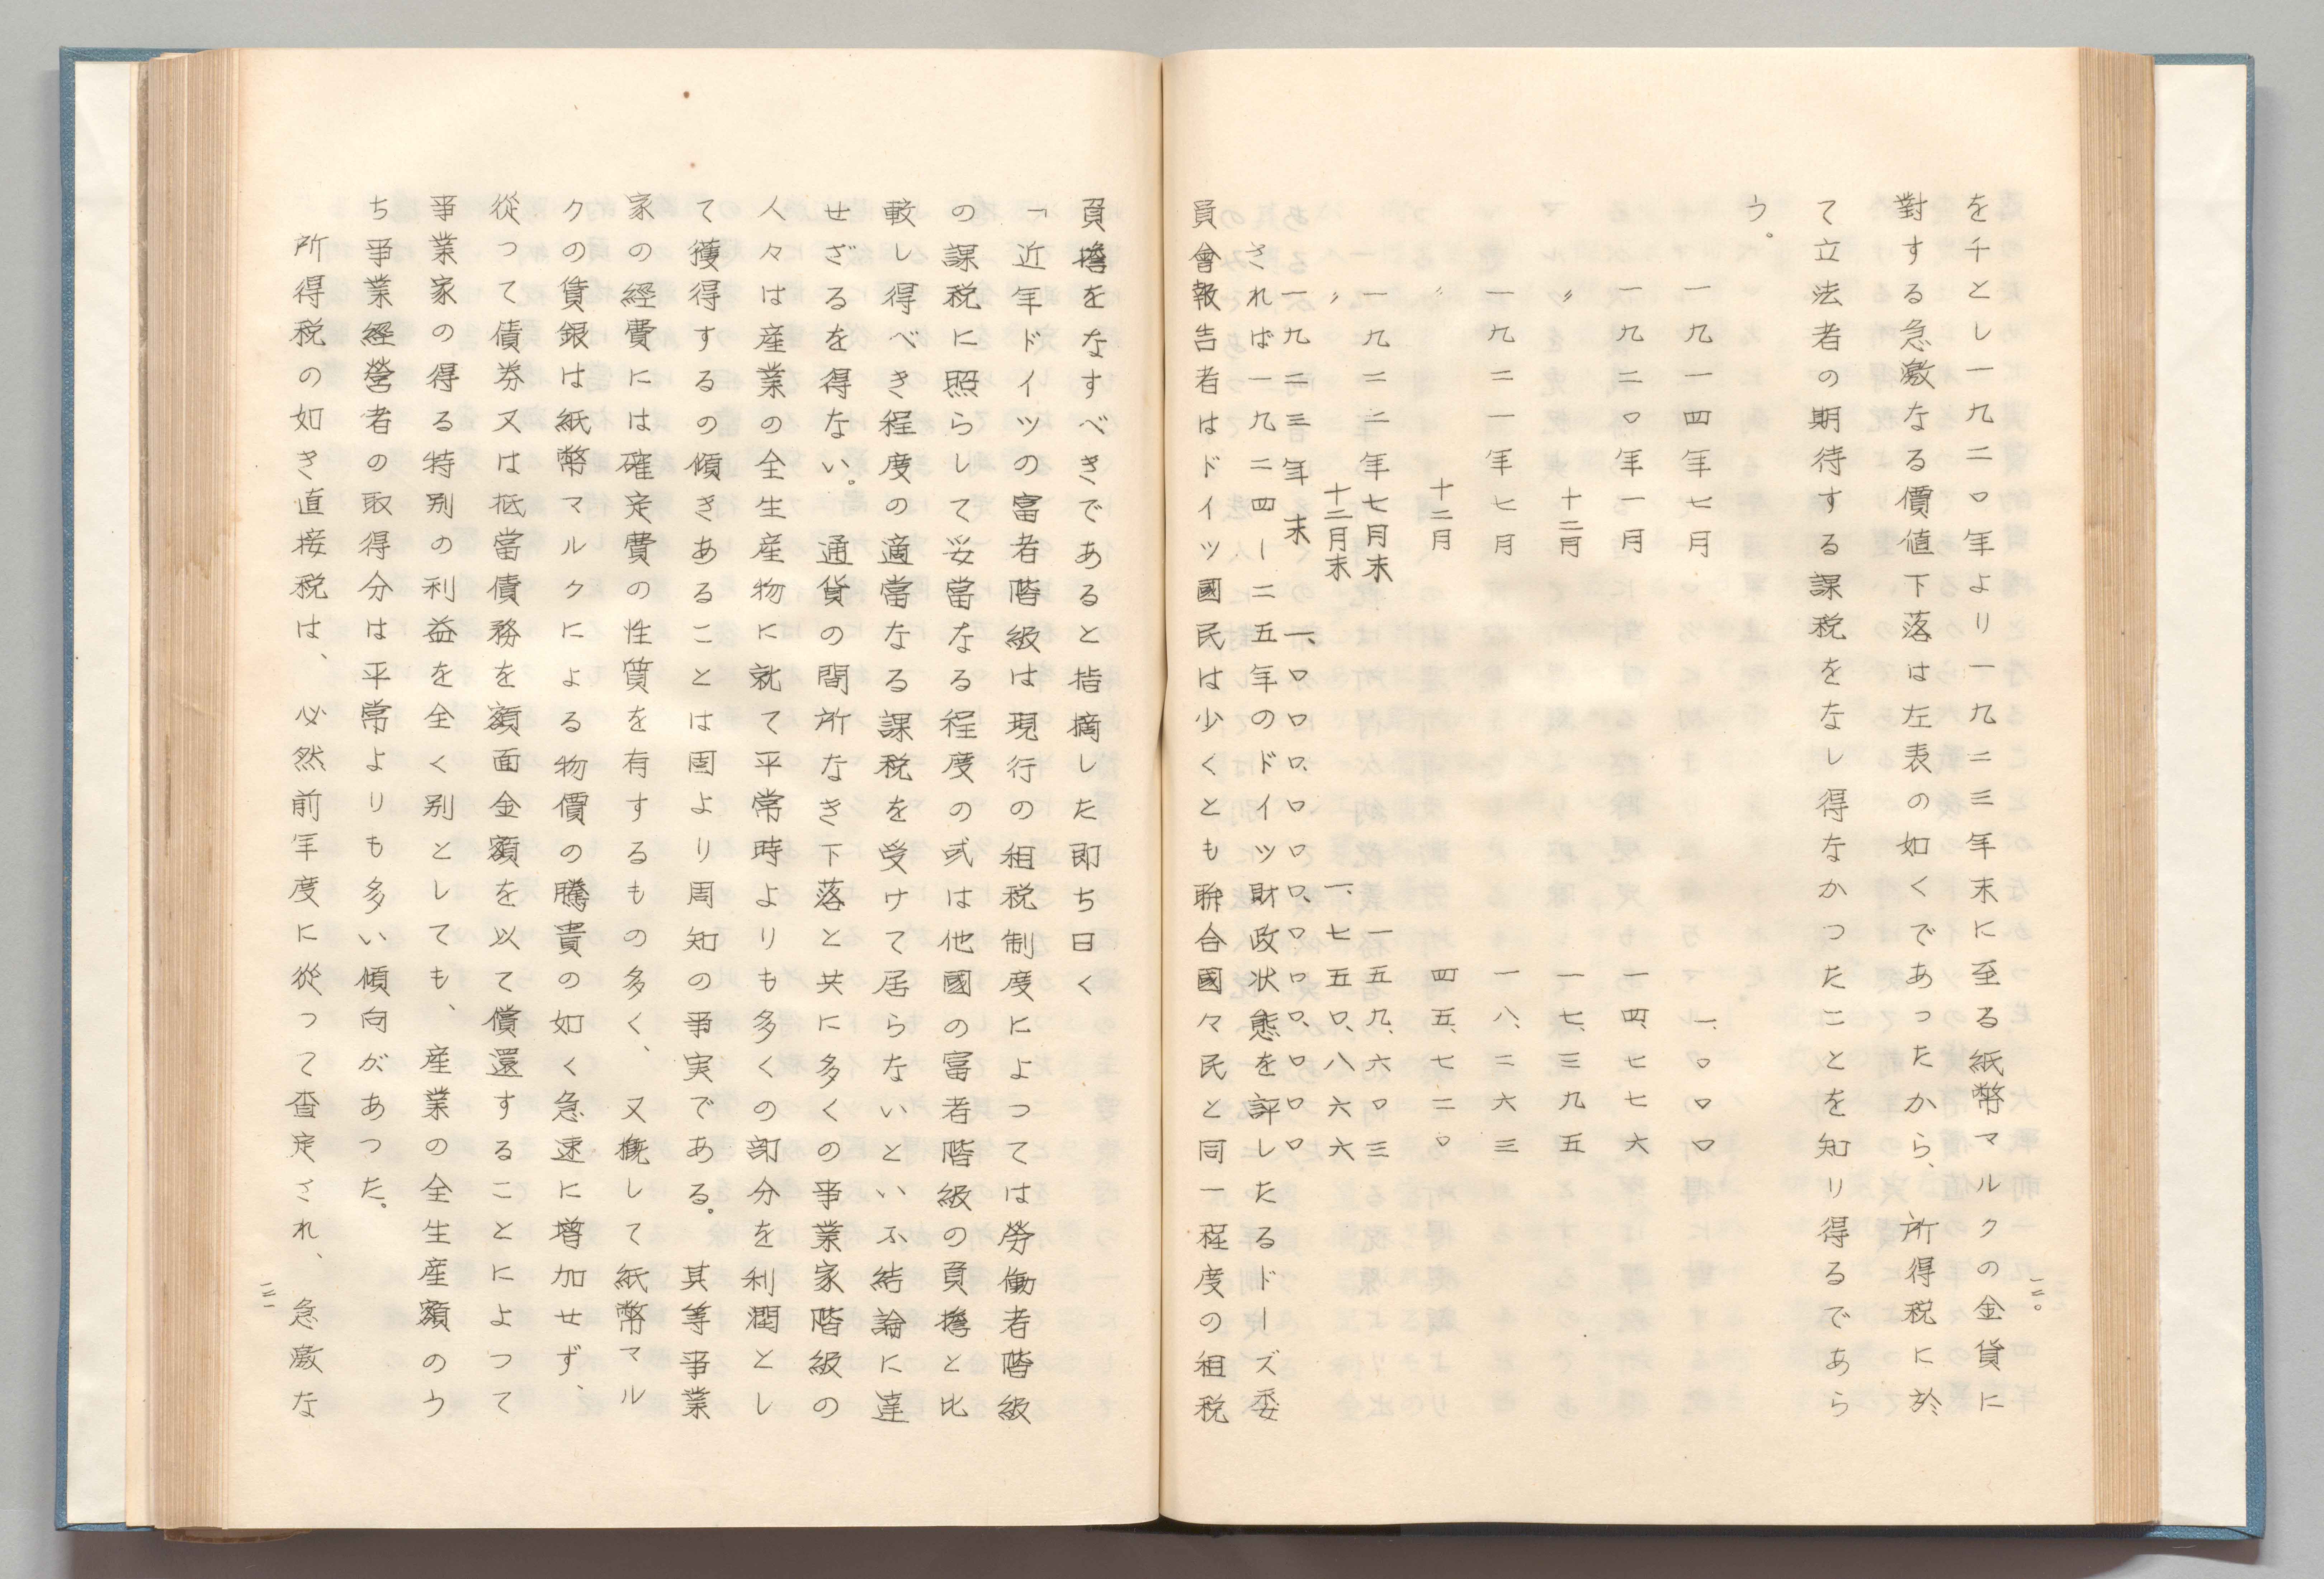 一二〇
を千とし一九二〇年より一九二三年末に至る紙幣マルクの金貨に
對する急激なる價値下落は左表の如くであったから、所得税に於
て立法者の期待する課税をなし得なかつたことを知り得るであら
う。
一九一四年七月 一、〇〇〇
一九二〇年一月 一四、七七六
〃 十二月 一七、三九五
一九二一年七月 一八、二六三
〃 十二月 四五、七二〇
一九二二年七月末 一五九、六〇三
〃 十二月末 一、七五〇、八六六
一九二三年末 一、〇〇〇、〇〇〇、〇〇〇、〇〇〇
されば一九二四ー二五年のドイツ財政状態を評したるドーズ委
員會報告者はドイツ國民は少くとも聯合國々民と同一程度の租税
負擔をなすべきであると指摘した即ち曰く
「近年ドイツの富者階級は現行の租税制度によつては勞働者階級
の課税に照らして妥當なる程度の或は他國の富者階級の負擔と比
較し得べき程度の適當なる課税を受けて居らないといふ結論に達
せざるを得ない。通貨の間所なき下落と共に多くの事業家階級の
人々は産業の全生産物に就て平常時よりも多くの部分を利潤とし
て獲得するの傾きあることは固より周知の事実である。其等事業
家の経費には確定費の性質を有するもの多く、又概して紙幣マル
クの賃銀は紙幣マルクによる物價の騰貴の如く急速に増加せず、
從って債券又は抵當債務を額面金額を以て償還することによつて
事業家の得る特別の利益を全く別としても、産業の全生産額のう
ち事業経營者の取得分は平常よりも多い傾向があつた。
所得税の如き直接税は、必然前年度に從って査定され、急激な
一二一